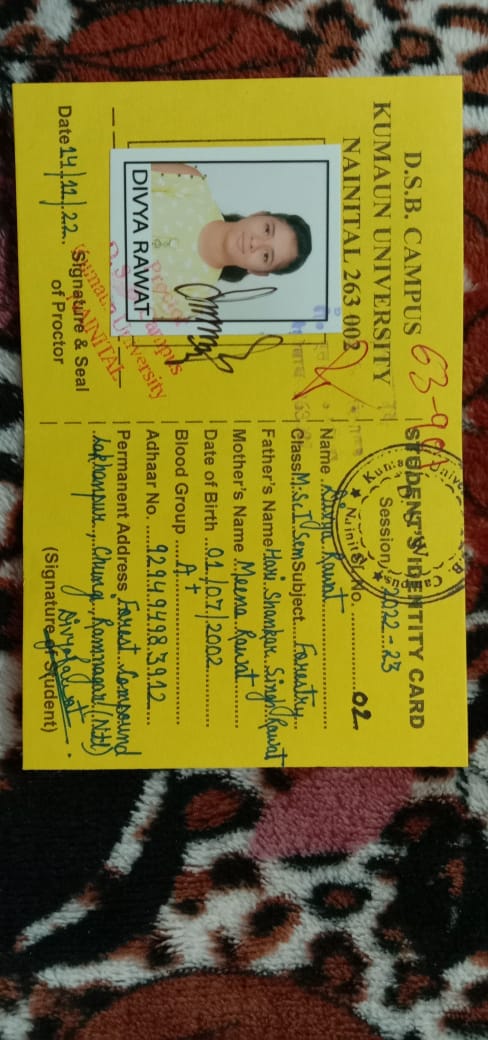 D.S.B. CAMPUS
KUMAUN UNIVERSITY
NAINITAL 263 002
DIVYA RAWAT
Proctor
D.S.B. Campus
Kumaun University
NAINITAL
Date 14/11/22. Signature & Seal
of Proctor
STUDENT'S IDENTITY CARD
Session 2022-23
No. 02
Name Divya Rawat
Class M.Sc I Sem Subject Forestry
Father's Name Hari Shankar Singh Rawat
Mother's Name Meena Rawat
Date of Birth 01/07/2002
Blood Group A+
Adhaar No. 929494183912
Permanent Address Forest Compound
Lakhanpur, Chungi, Ramnagar (Ntl)
Divya Rawat
(Signature of Student)